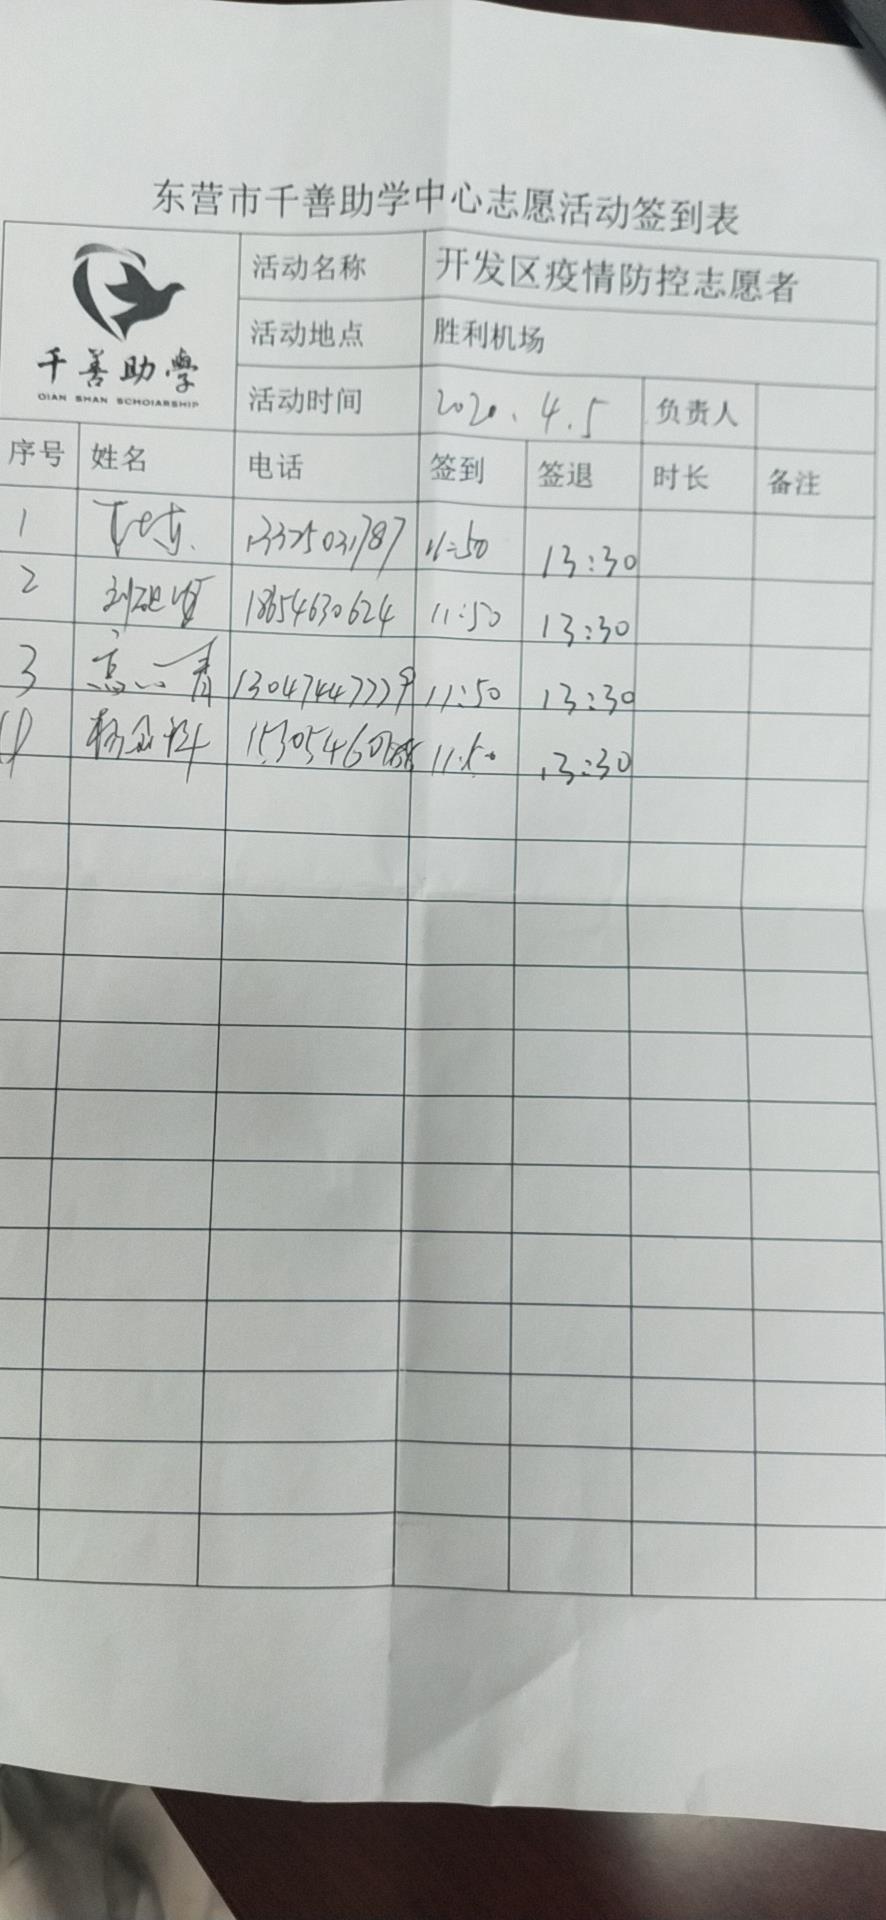 东营市千善助学中心志愿活动签到表
千善助學
QIAN SHAN SCHOIARSHIP
活动名称 开发区疫情防控志愿者
活动地点 胜利机场
活动时间 2020.4.5 负责人
序号 姓名 电话 签到 签退 时长 备注
1 13325031787 11:50 13:30
2 18654630624 11:50 13:30
3 13047447779 11:50 13:30
4 11:50 13:30